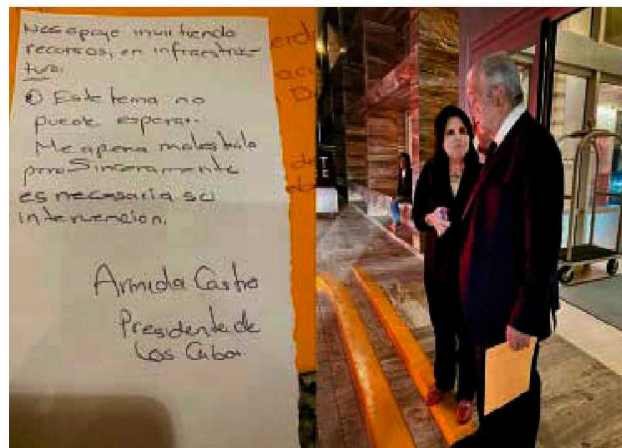 Nos apoye invirtiendo
recursos, en infraestruc-
tura.
Este tema no
puede esperar.
Me apena molestarlo
pero Sinceramente
es necesaria su
intervención.
Armida Castro
Presidente de
Los Cabos.